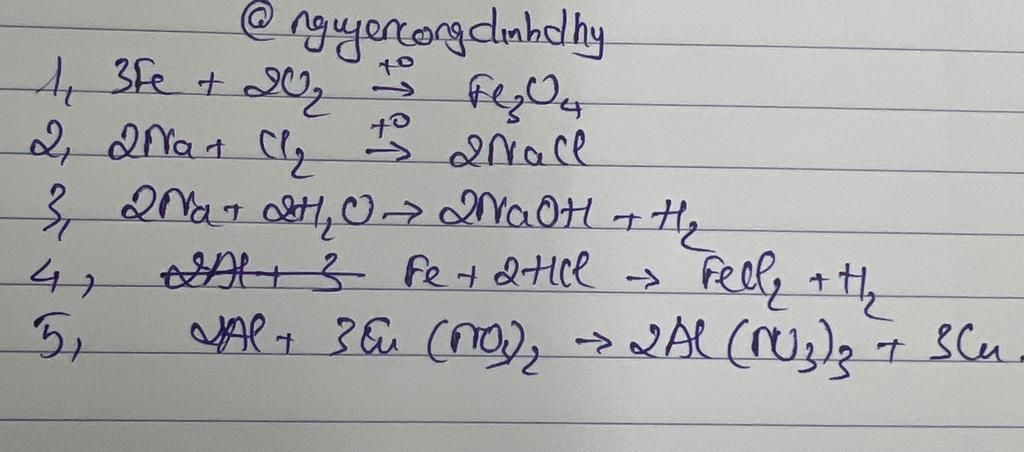 @nguyencongdinhdhy
1, 3Fe + 2O₂ →(t°) Fe₃O₄
2, 2Na + Cl₂ →(t°) 2NaCl
3, 2Na + 2H₂O → 2NaOH + H₂
4, 2Al + 3 Fe + 2HCl → FeCl₂ + H₂
5, 2Al + 3Cu(NO₃)₂ → 2Al(NO₃)₃ + 3Cu.